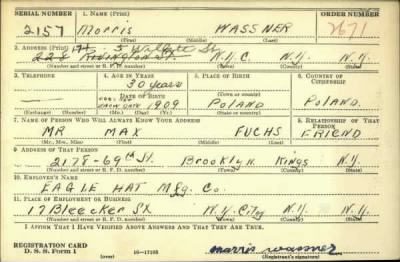 SERIAL NUMBER 1. NAME (Print) ORDER NUMBER
2157 MORRIS WASSNER 2671
(First) (Middle) (Last)
2. ADDRESS (Print)
228 RIVINGTON ST. N.Y.C. N.Y. N.Y.
(Number and street or R. F. D. number) (Town) (County) (State)
3. TELEPHONE 4. AGE IN YEARS 5. PLACE OF BIRTH 6. COUNTRY OF CITIZENSHIP
30 years POLAND POLAND.
DATE OF BIRTH (Town or county)
1909 POLAND
(Exchange) (Number) (Mo.) (Day) (Yr.) (State or country)
7. NAME OF PERSON WHO WILL ALWAYS KNOW YOUR ADDRESS 8. RELATIONSHIP OF THAT PERSON
MR MAX FUCHS FRIEND
(Mr., Mrs., Miss) (First) (Middle) (Last)
9. ADDRESS OF THAT PERSON
2178-69th St. Brooklyn. Kings N.Y.
(Number and street or R. F. D. number) (Town) (County) (State)
10. EMPLOYER'S NAME
EAGLE HAT Mfg. Co.
11. PLACE OF EMPLOYMENT OR BUSINESS
17 Bleecker St N.Y. City N.Y. N.Y.
(Number and street or R. F. D. number) (Town) (County) (State)
I AFFIRM THAT I HAVE VERIFIED ABOVE ANSWERS AND THAT THEY ARE TRUE.
REGISTRATION CARD
D. S. S. Form 1 (over) 16—17105 morris wassner
(Registrant's signature)